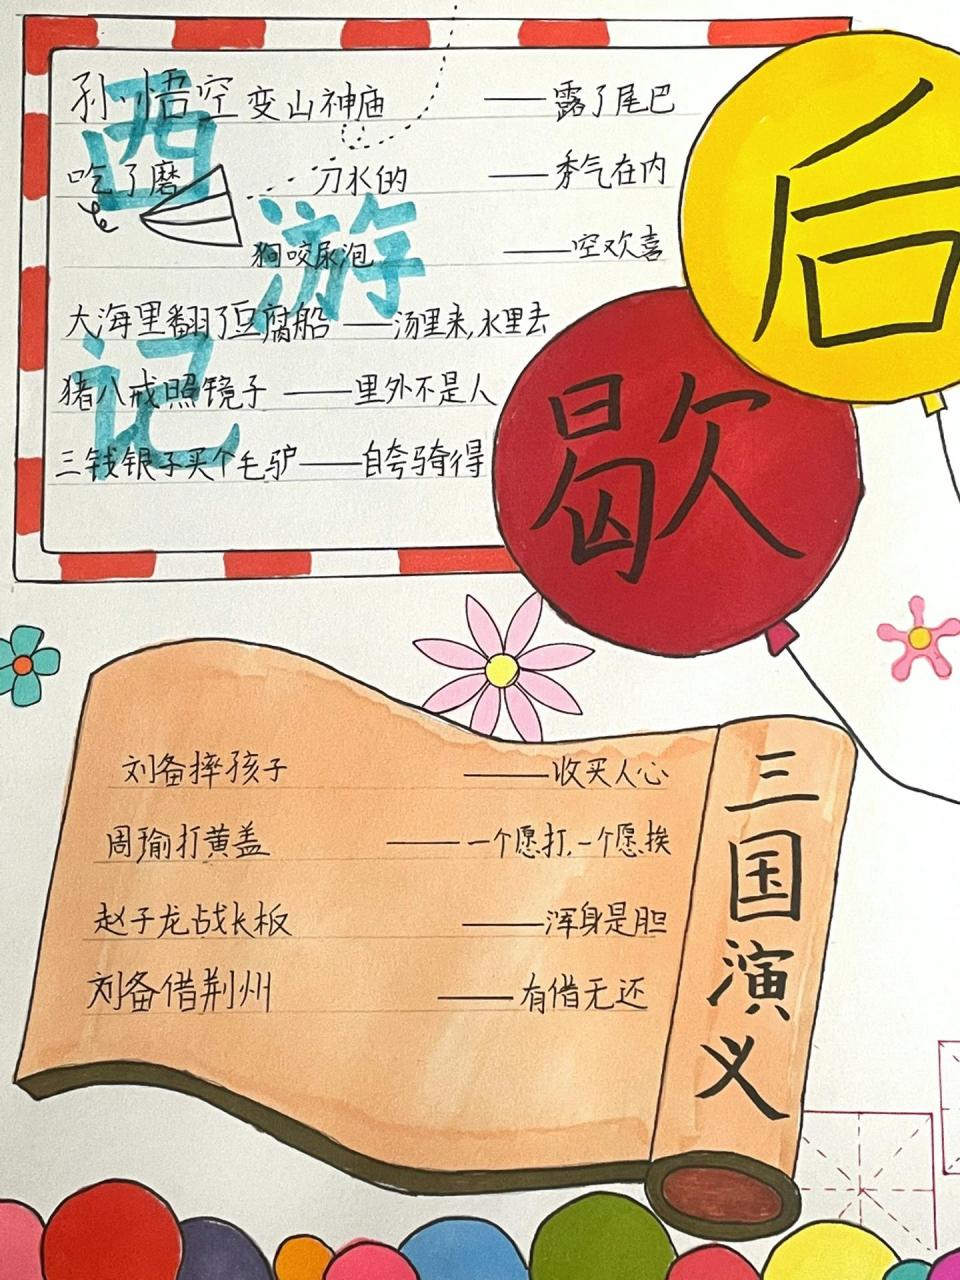 西游记
孙悟空变山神庙——露了尾巴
吃了磨刀水的——秀气在内
狗咬尿泡——空欢喜
大海里翻了豆腐船——汤里来,水里去
猪八戒照镜子——里外不是人
三钱银子买个毛驴——自夸骑得
后
歇
三国演义
刘备摔孩子——收买人心
周瑜打黄盖——一个愿打,一个愿挨
赵子龙战长板——浑身是胆
刘备借荆州——有借无还